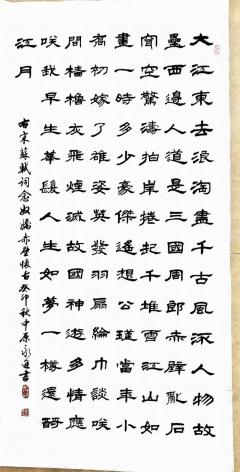 大江東去浪淘盡千古風流人物故
壘西邊人道是三國周郎赤壁亂石
空驚濤拍岸捲起千堆雪江山如
畫一時多少豪傑遙想公瑾當年小
喬初嫁了雄姿英發羽扇綸巾談笑
間檣櫓灰飛煙滅故國神遊多情應
笑我早生華髮人生如夢一樽還酹
江月
右宋蘇軾詞念奴嬌赤壁懷古癸卯秋中原永書